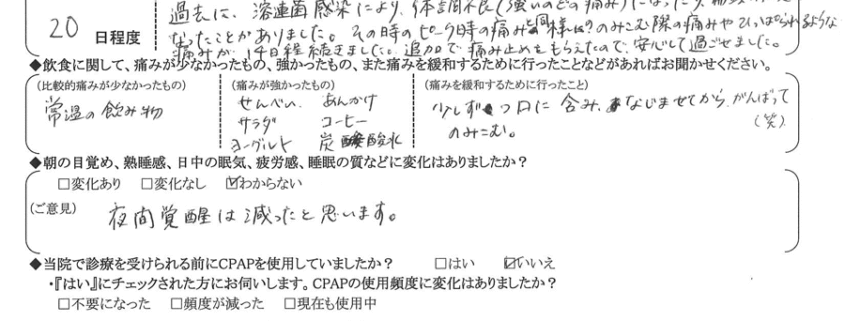 過去に、溶連菌感染により、体調不良(強いのどの痛み)になった
20 日程度
なったことがありました。その時のピーク時の痛みと同様のみこむ際の痛みやひっぱられるような
痛みが14日程続きました。追加で痛み止めをもらえたので、安心して過ごせました。
◆飲食に関して、痛みが少なかったもの、強かったもの、また痛みを緩和するために行ったことなどがあればお聞かせください。
(比較的痛みが少なかったもの) (痛みが強かったもの) (痛みを緩和するために行ったこと)
常温の飲み物 せんべい あんかけ 少しずつ口に含み、なじませてから、がんばって
サラダ コーヒー のみこむ。 (笑)
ヨーグルト 炭酸水
◆朝の目覚め、熟睡感、日中の眠気、疲労感、睡眠の質などに変化はありましたか?
□変化あり □変化なし ☑わからない
(ご意見) 夜間覚醒は減ったと思います。
◆当院で診療を受けられる前にCPAPを使用していましたか? □はい ☑いいえ
・『はい』にチェックされた方にお伺いします。CPAPの使用頻度に変化はありましたか?
□不要になった □頻度が減った □現在も使用中